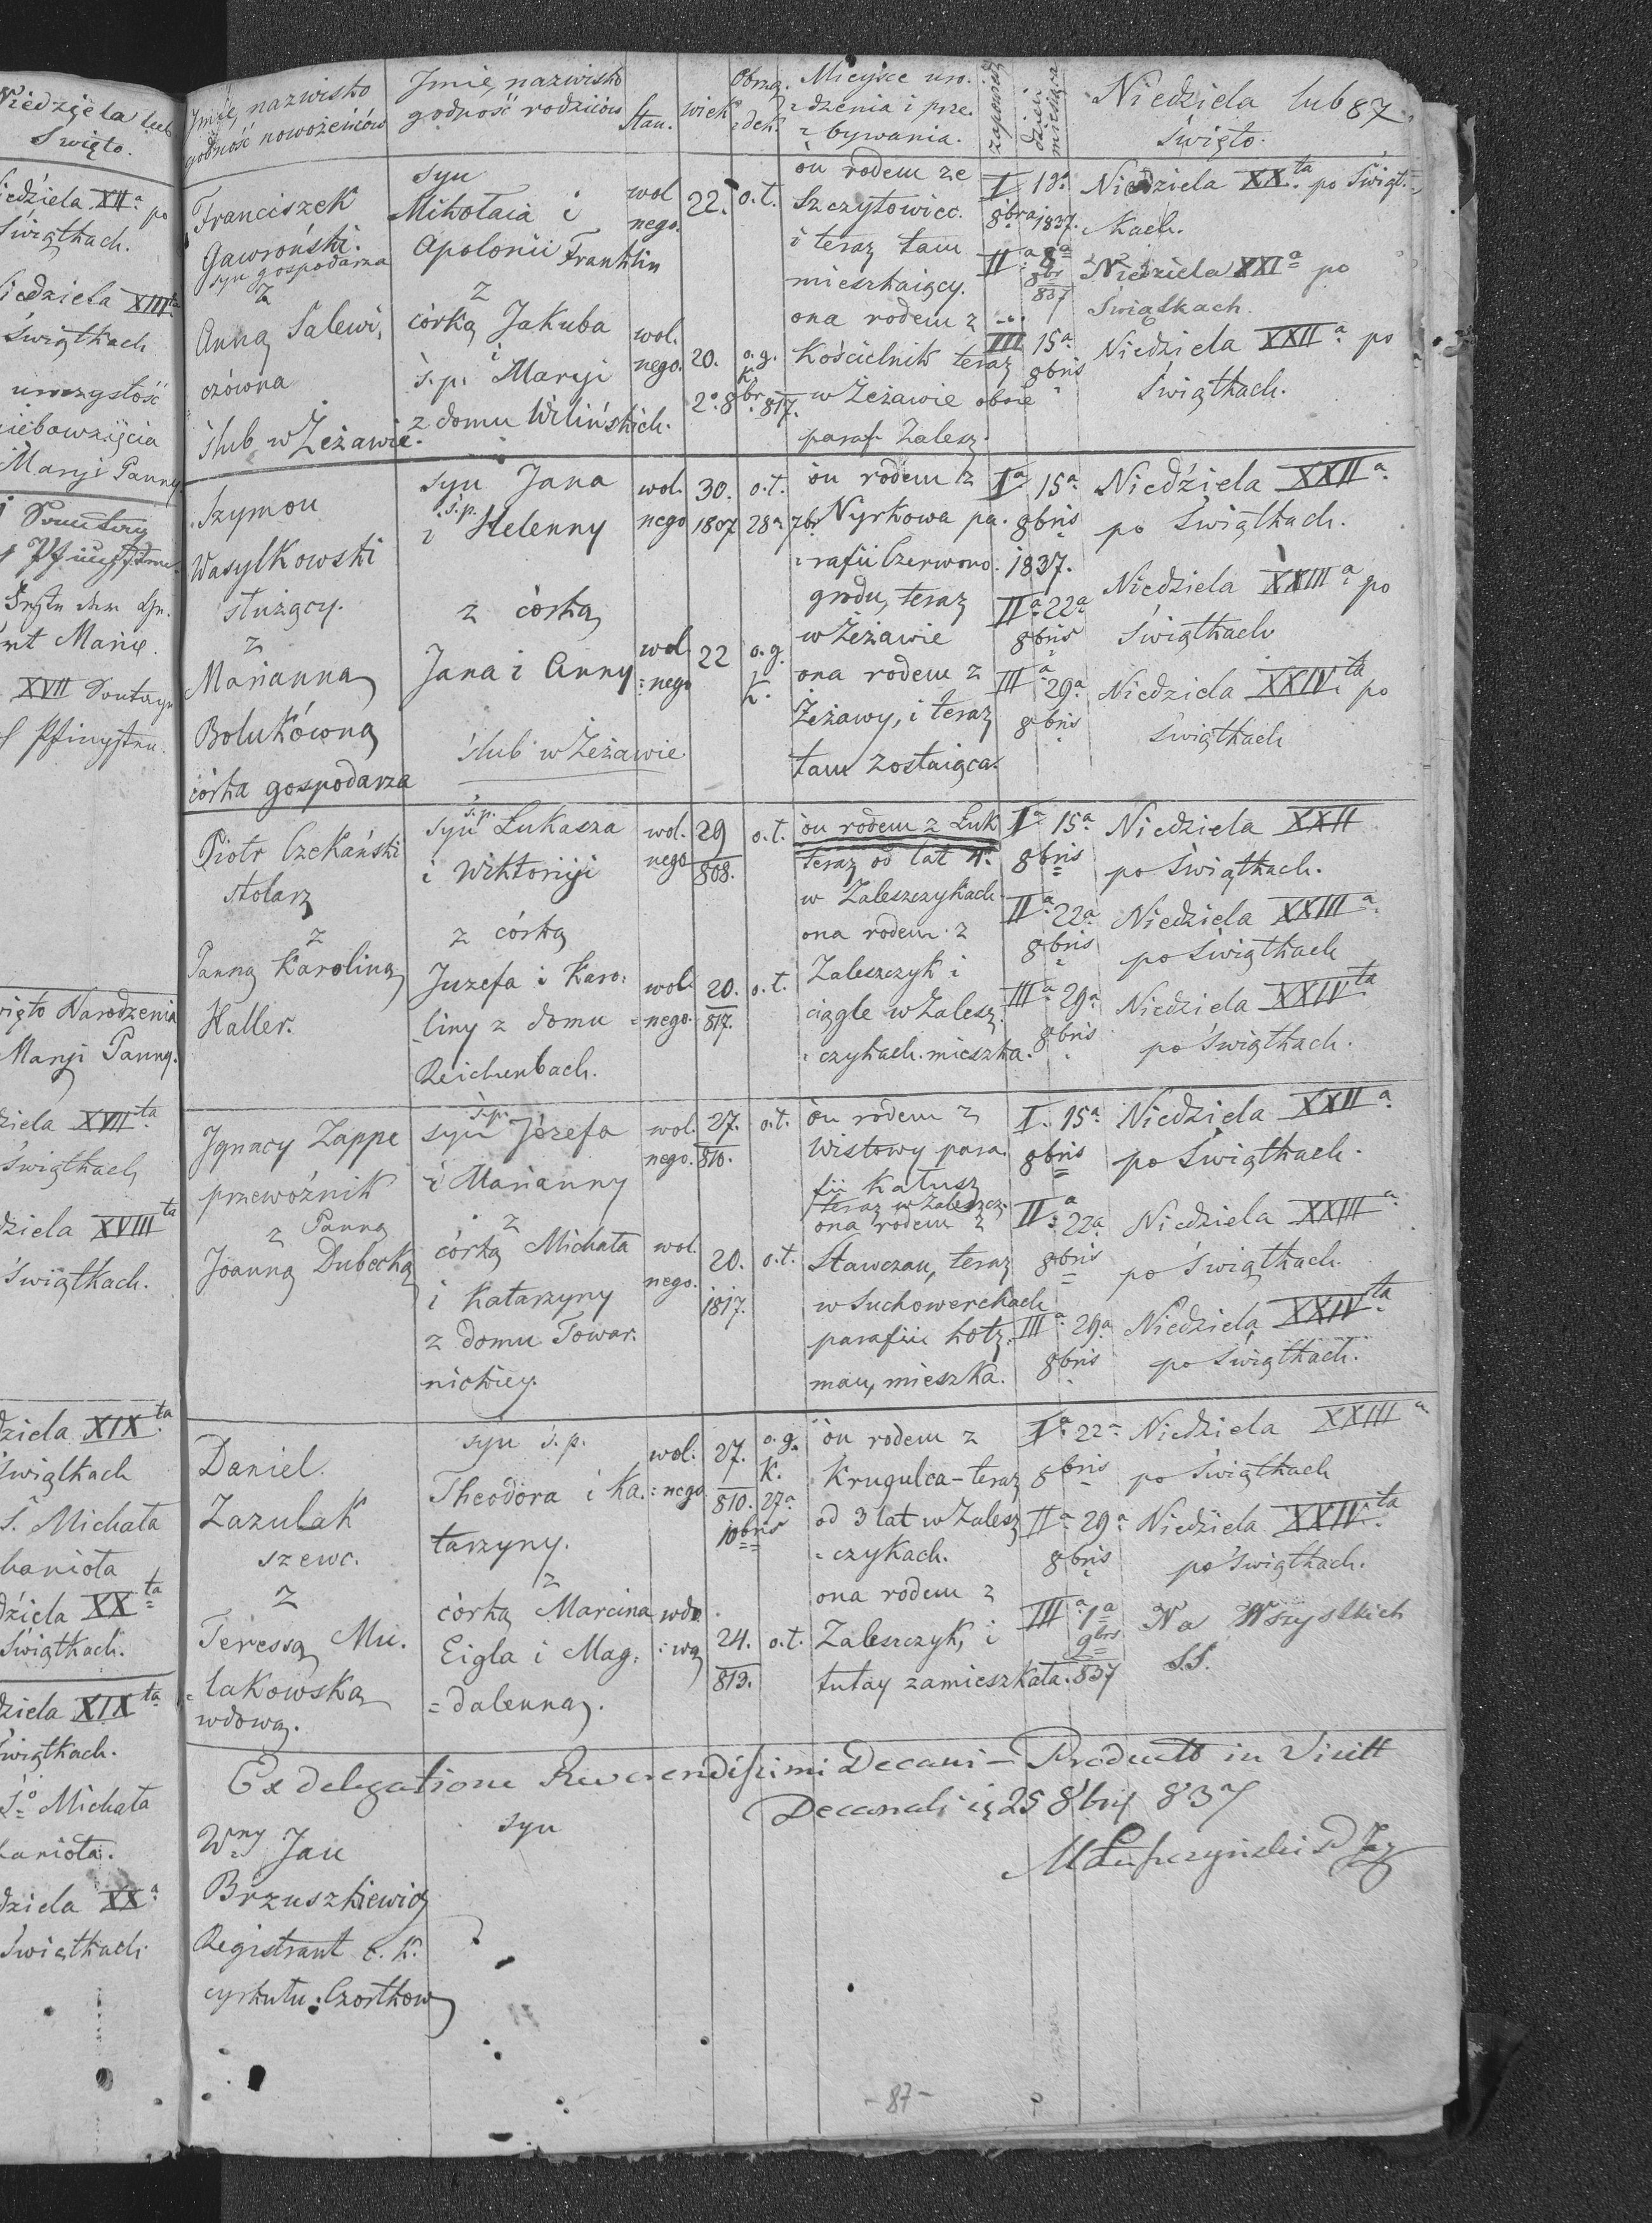 Niedziela lub
Święto.
Niedziela XII.a po
Świątkach.
Niedziela XIII
Świątkach
uroczystość
Maryi Panny
Marię.
XVII
święto Narodzenia
Maryi Panny.
XVII ta
Świątkach
XVIII ta
Świątkach.
XIX ta
Świątkach
S. Michała
XX ta
Świątkach.
XIX ta
Świątkach.
Michała
XX a
Świątkach
Imię, nazwisko
godność nowożeńców
Imię, nazwisko
godność rodziców
Stan.
wiek
Obrzą.
dek.
Mieysce uro.
dzenia i prze.
bywania.
zapowiedź
dzień
miesiąca
Niedziela lub 87.
święto.
Franciszek
Gawroński.
syn gospodarza
z
Anną Salewi,
czówna
ślub w Zeżawie.
syn
Mikołaia i
Apolonii Franklin
z
córką Jakuba
i
ś.p. Maryi
z domu Wilińskich.
wol
nego.
22.
o.t.
wol.
nego.
20.
o.g.
K.
2a 8br 817.
òn rodem ze
Szczytowiec.
i teraz tam
mieszkaiący.
ona rodem z
Kościelnik teraz
w Zeżawie oboie
paraf. Zalesz.
I 1a
8bra 1837.
II a 8a
8br
837
III 15a
8bris
Niedziela XX.ta po Świąt.
kach.
Niedziela XXI a po
Świątkach.
Niedziela XXII a po
Świątkach.
Szymon
Wasylkowski
służący.
z
Marianną
Bolukówną
córka gospodarza
syn Jana
ś.p.
i Helenny
z córką
Jana i Anny
ślub w Zeżawie
wol.
nego
30.
1807
o.t.
28a 7br
wol
nego
22
o.g.
K.
òn rodem z
Nyrkowa pa.
rafii Czerwono.
grodu, teraz
w Zeżawie
ona rodem z
Zeżawy, i teraz
tam zostaiąca.
I a 15a
8bris
1837.
II a 22a
8bris
III a 29a
8bris
Niedziela XXII a
po Świątkach.
Niedziela XXIII a po
Świątkach
Niedziela XXIV.ta po
Świątkach
Piotr Czekański
stolarz
z
Panną Karoliną
Haller.
ś.p.
syn Łukasza
i Wiktoryi
z córką
Juzefa i Karo.
liny z domu
Reichenbach.
wol.
nego
29
808.
o.t.
wol.
nego.
20.
817.
o.t.
òn rodem z Łuk
teraz od lat 4.
w Zaleszczykach
ona rodem z
Zaleszczyk i
ciągle w Zalesz.
czykach mieszka.
I a 15a
8bris
II a 22a
8bris
III a 29a
8bris
Niedziela XXII
po Świątkach.
Niedziela XXIII a
po Świątkach
Niedziela XXIV ta
po Świątkach.
Ignacy Zappe
przewoźnik
z Panną
Joanną Dubecką
ś.p.
syn Józefa
i Marianny
z
córką Michała
i Katarzyny
z domu Towar.
nickiey.
wol.
nego.
27.
810.
o.t.
wol.
nego.
20.
1817.
o.t.
òn rodem z
Wistowy para.
fii Kałusz
teraz w Zaleszcz.
ona rodem z
Stawczan, teraz
w Suchowerchach
parafii Kotz.
man, mieszka.
I. 15a
8bris
II a 22a
8bris
III a 29a
8bris
Niedziela XXII a
po Świątkach.
Niedziela XXIII a
po Świątkach.
Niedziela XXIV ta
po Świątkach.
Daniel
Zazulak
szewc.
z
Teressą Mu.
lakowską
wdową.
syn ś.p.
Theodora i Ka.
tarzyny.
z
córką Marcina
Eigla i Mag.
dalenną.
wol.
nego
27.
810.
10bris
o.g.
K.
27a
wdo
wą
24.
813.
o.t.
òn rodem z
Krugulca – teraz
od 3 lat w Zalesz
czykach.
ona rodem z
Zaleszczyk, i
tutay zamieszkała.
I a 22a
8bris
II a 29a
8bris
III a 1a
9bris
837
Niedziela XXIII a
po Świątkach
Niedziela XXIV ta
po Świątkach.
Na Wszystkich
SS.
Ex delegatione Reverendissimi Decani – Productt in Visitt
Decanali 25 8bris 837
Wny Jan
Brzuszkiewicz
Registrant c. K.
cyrkułu Czortkow
syn
- 87 -